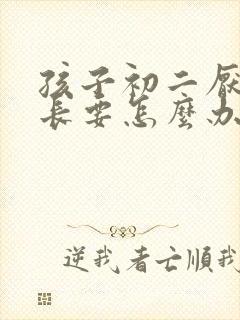 孩子初二厌
長要怎麼办
逆我者亡順我